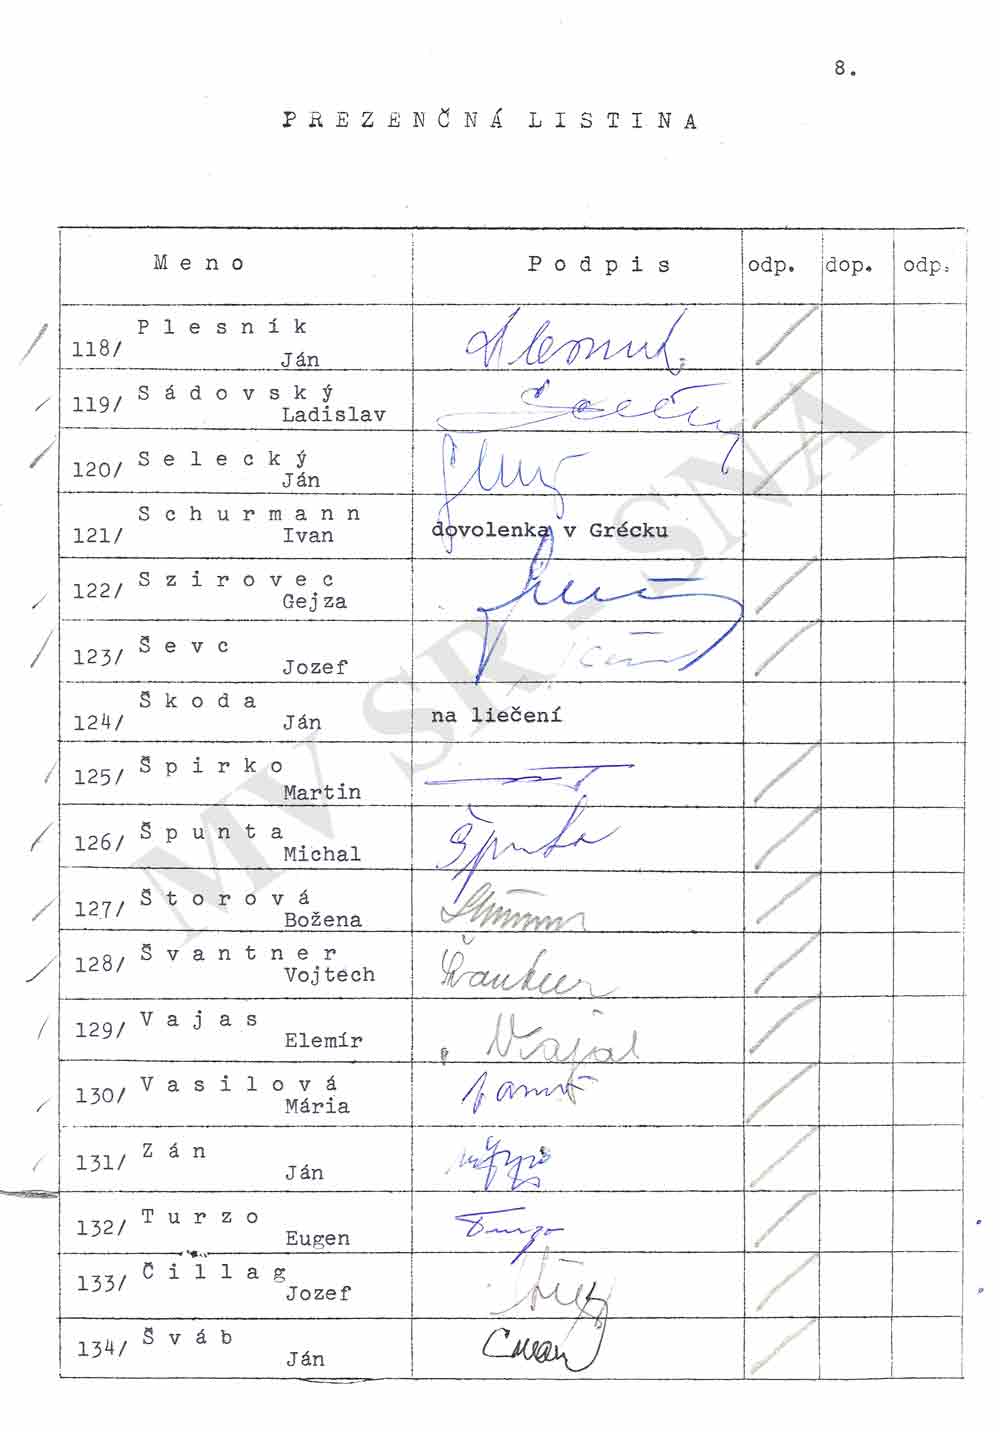 8.
PREZENČNÁ LISTINA
Meno Podpis odp. dop. odp.
118/ Plesník
Ján
119/ Sádovský
Ladislav
120/ Selecký
Ján
121/ Schurmann
Ivan dovolenka v Grécku
122/ Szirovec
Gejza
123/ Ševc
Jozef
124/ Škoda
Ján na liečení
125/ Špirko
Martin
126/ Špunta
Michal Špunta
127/ Štorová
Božena
128/ Švantner
Vojtech
129/ Vajas
Elemír
130/ Vasilová
Mária
131/ Zán
Ján
132/ Turzo
Eugen Turzo
133/ Čillag
Jozef
134/ Šváb
Ján
MV SR - SNA